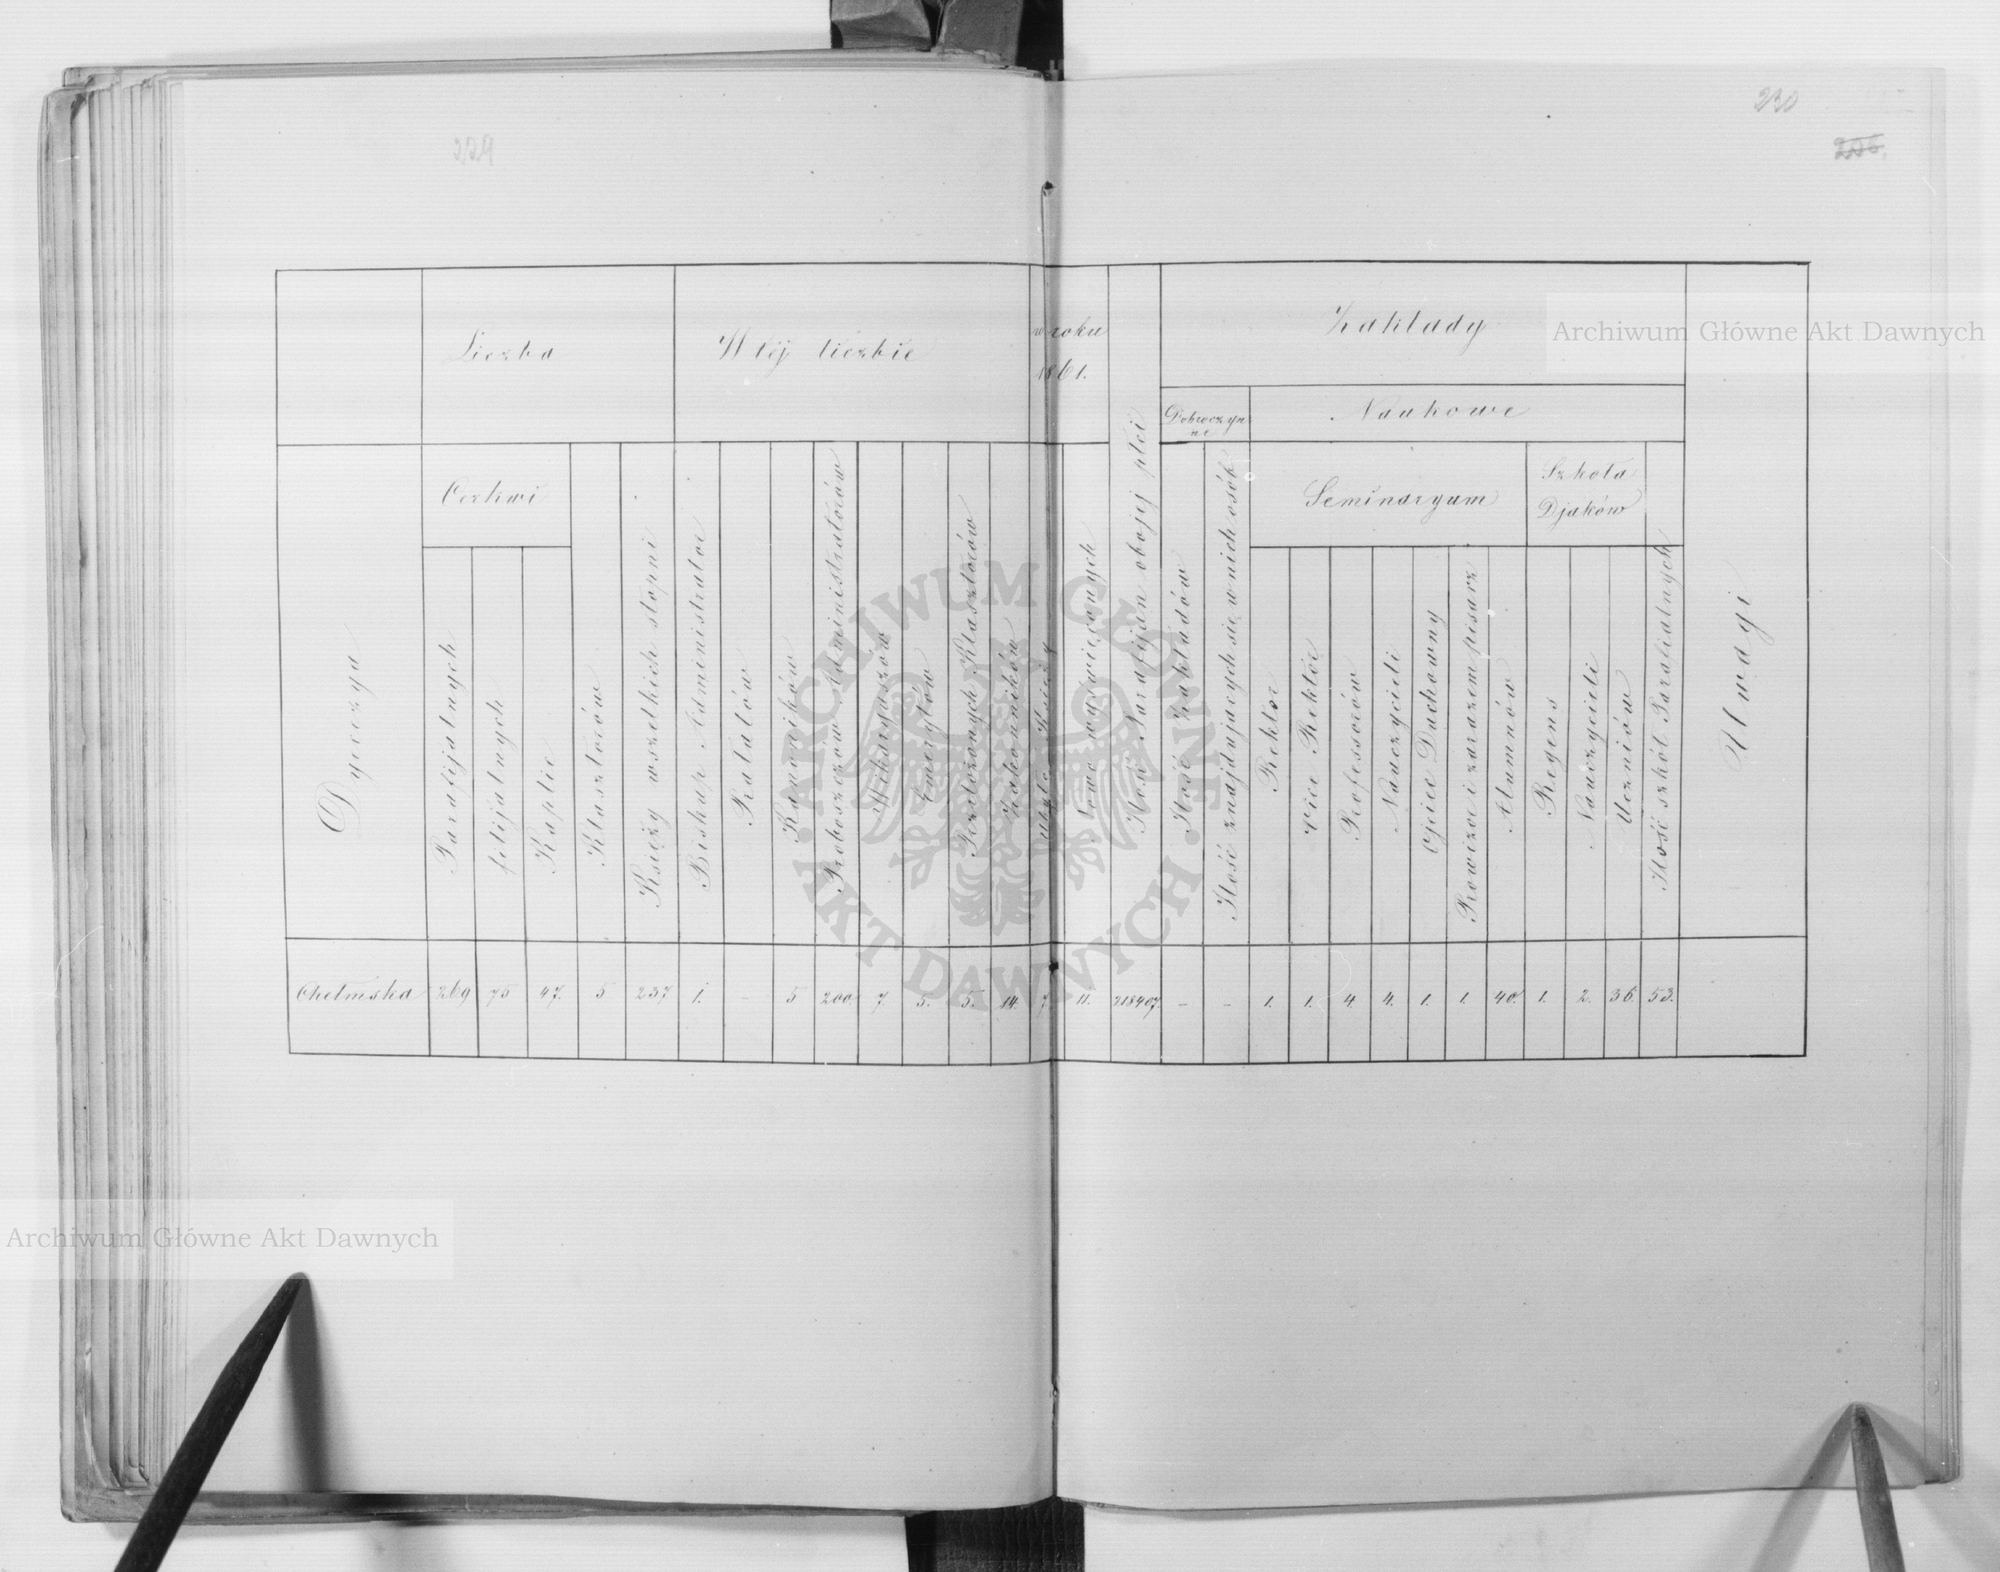 229
230
226.
Liczba
W téj liczbie
w roku
1861.
Zakłady
Dobroczyn
ne
Naukowe
Cerkwi
Seminaryum
Szkoła
Djaków
Dyecezya
Parafijalnych
filijalnych
Kaplic
Klasztorów
Księży wszelkich stopni
Biskup Administrator
Prałatów
Kanoników
Proboszczów i Administratorów
Wikaryuszów
Emerytów
Przełożonych Klasztorów
Zakonników
ubyło Księży
nowo wyświęconych
Ilość Parafijan obojej płci
Ilość zakładów
Ilość znajdujących się w nich osób
Rektor
Vice Rektor
Professorów
Nauczycieli
Ojciec Duchowny
Prowizor i zarazem pisarz
Alumnów
Regens
Nauczycieli
Uczniów
Ilość szkół Parafialnych
Uwagi
Chełmska 269 75 47. 5 237 1. - 5 200 7. 5. 5. 14. 7. 11. 218407. - - 1. 1. 4 4. 1. 1. 40. 1. 2. 36. 53.
Archiwum Główne Akt Dawnych
Archiwum Główne Akt Dawnych
ARCHIWUM GŁÓWNE
AKT DAWNYCH